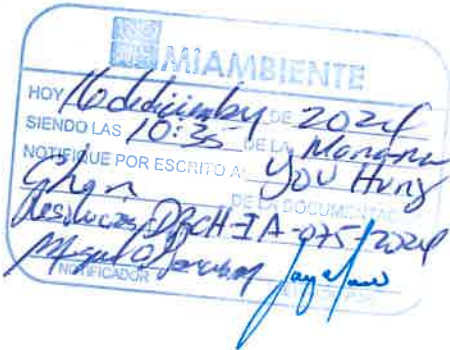 MiAMBIENTE
HOY 16 de diciembre DE 2024
SIENDO LAS 10:35 DE LA Manana
NOTIFIQUE POR ESCRITO A You Hung
Chan DE LA DOCUMENTAC
Resolución DRCH-IA-075-2024
NOTIFICADOR